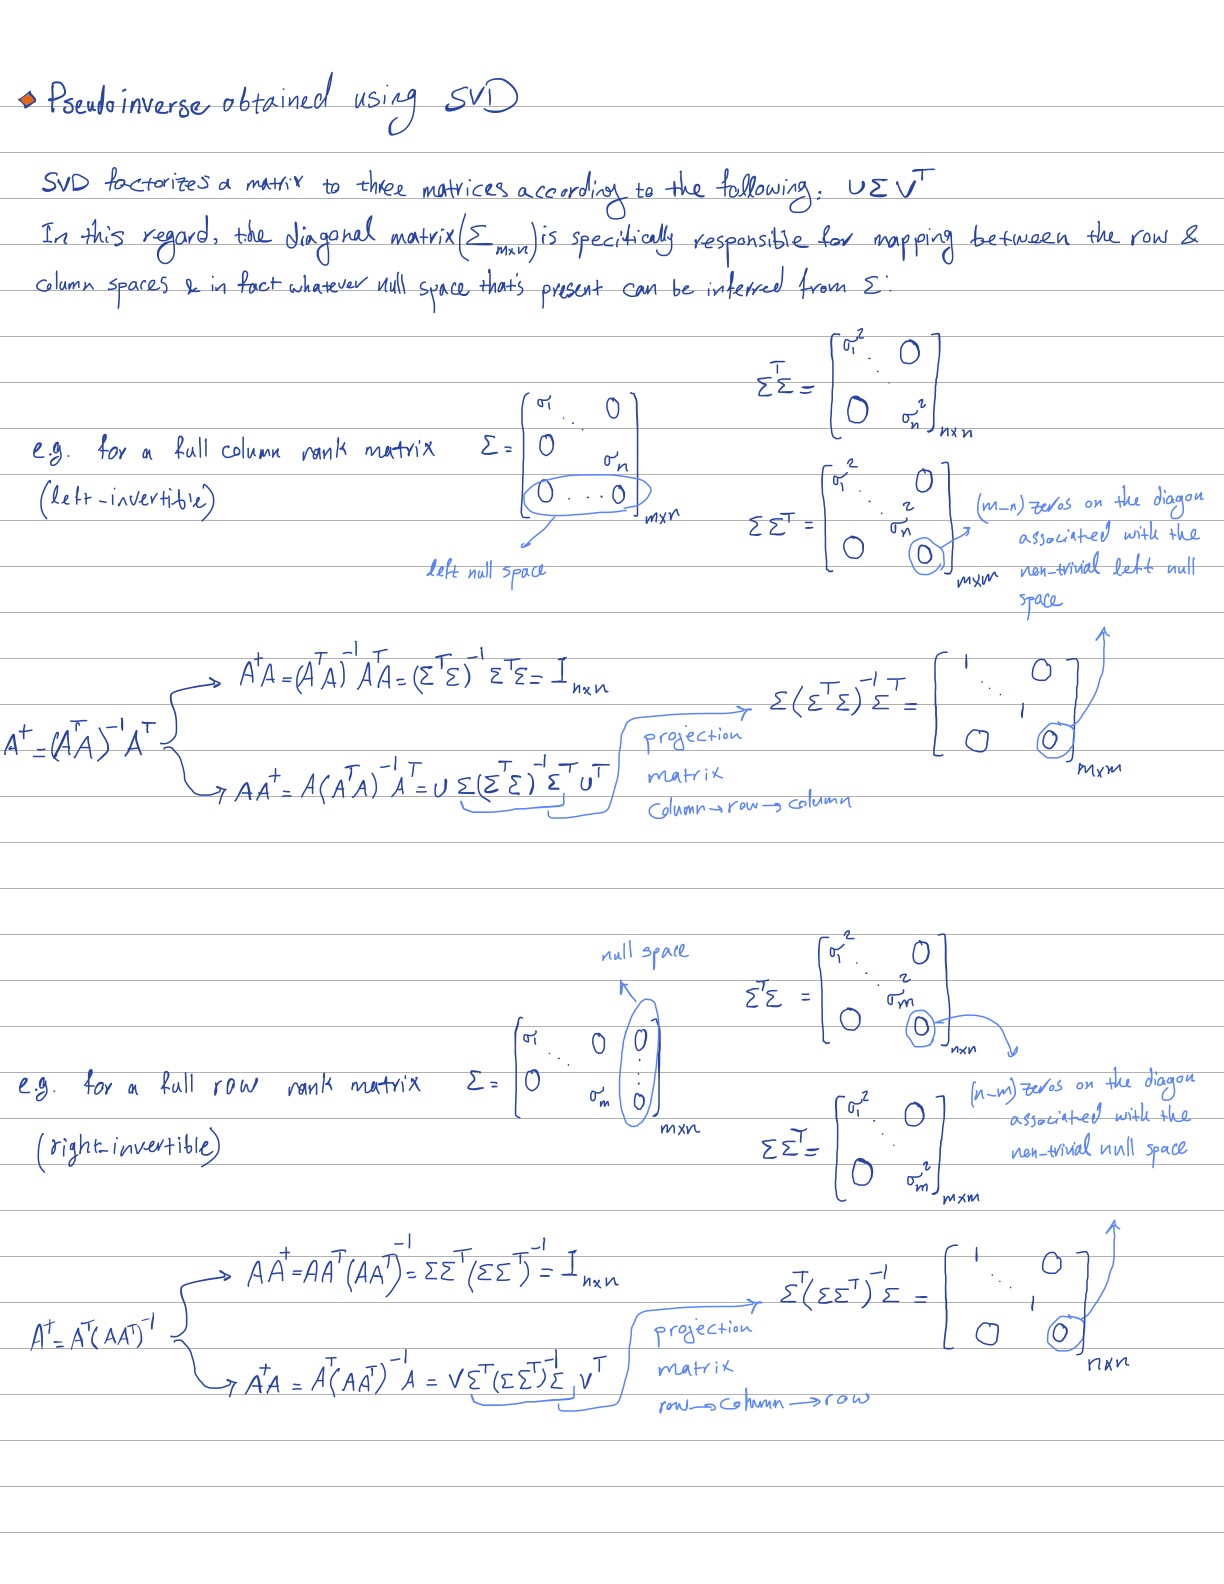 Pseudoinverse obtained using SVD
SVD factorizes a matrix to three matrices according to the following: UΣV^T
In this regard, the diagonal matrix (Σ_{m×n}) is specifically responsible for mapping between the row &
column spaces & in fact whatever null space that's present can be inferred from Σ:
Σ^TΣ = [σ₁² ⋱ 0 0 σₙ²]_{n×n}
e.g. for a full column rank matrix Σ = [σ₁ ⋱ 0 0 σₙ 0 ... 0]_{m×n}
(left-invertible)
left null space
ΣΣ^T = [σ₁² ⋱ 0 σₙ² 0 0]_{m×m}
(m-n) zeros on the diagon
associated with the
non-trivial left null
space
A⁺A = (A^TA)^{-1}A^TA = (Σ^TΣ)^{-1}Σ^TΣ = I_{n×n}
A⁺ = (A^TA)^{-1}A^T
AA⁺ = A(A^TA)^{-1}A^T = UΣ(Σ^TΣ)^{-1}Σ^TU^T
projection
matrix
Column → row → column
Σ(Σ^TΣ)^{-1}Σ^T = [1 ⋱ 0 1 0 0]_{m×m}
null space
Σ^TΣ = [σ₁² ⋱ 0 σₘ² 0 0]_{n×n}
e.g. for a full row rank matrix Σ = [σ₁ ⋱ 0 0 0 ⋮ σₘ 0]_{m×n}
(right-invertible)
(n-m) zeros on the diagon
associated with the
non-trivial null space
ΣΣ^T = [σ₁² ⋱ 0 0 σₘ²]_{m×m}
AA⁺ = AA^T(AA^T)^{-1} = ΣΣ^T(ΣΣ^T)^{-1} = I_{n×n}
A⁺ = A^T(AA^T)^{-1}
A⁺A = A^T(AA^T)^{-1}A = VΣ^T(ΣΣ^T)^{-1}ΣV^T
projection
matrix
row → column → row
Σ^T(ΣΣ^T)^{-1}Σ = [1 ⋱ 0 1 0 0]_{n×n}